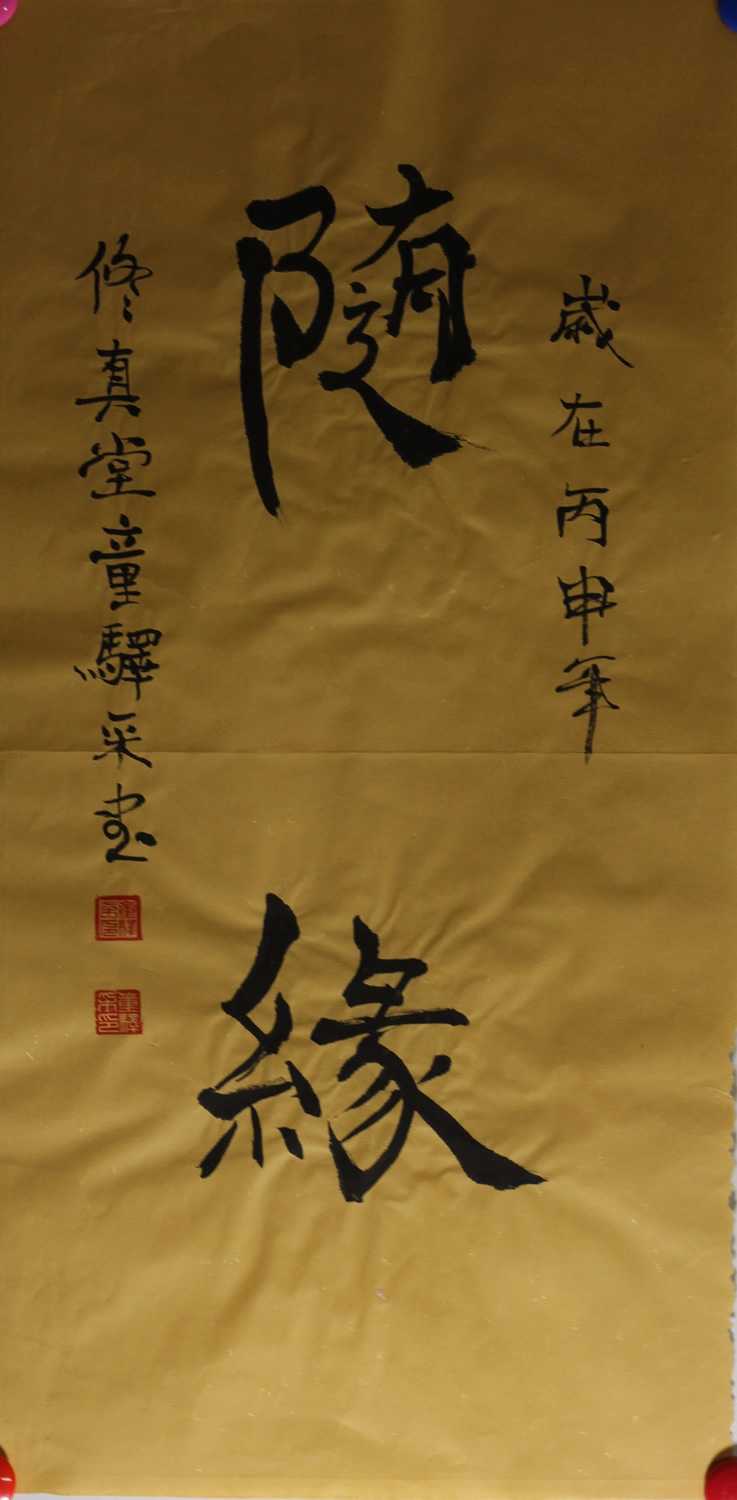 歲在丙申年
隨緣
修真堂童驛采書